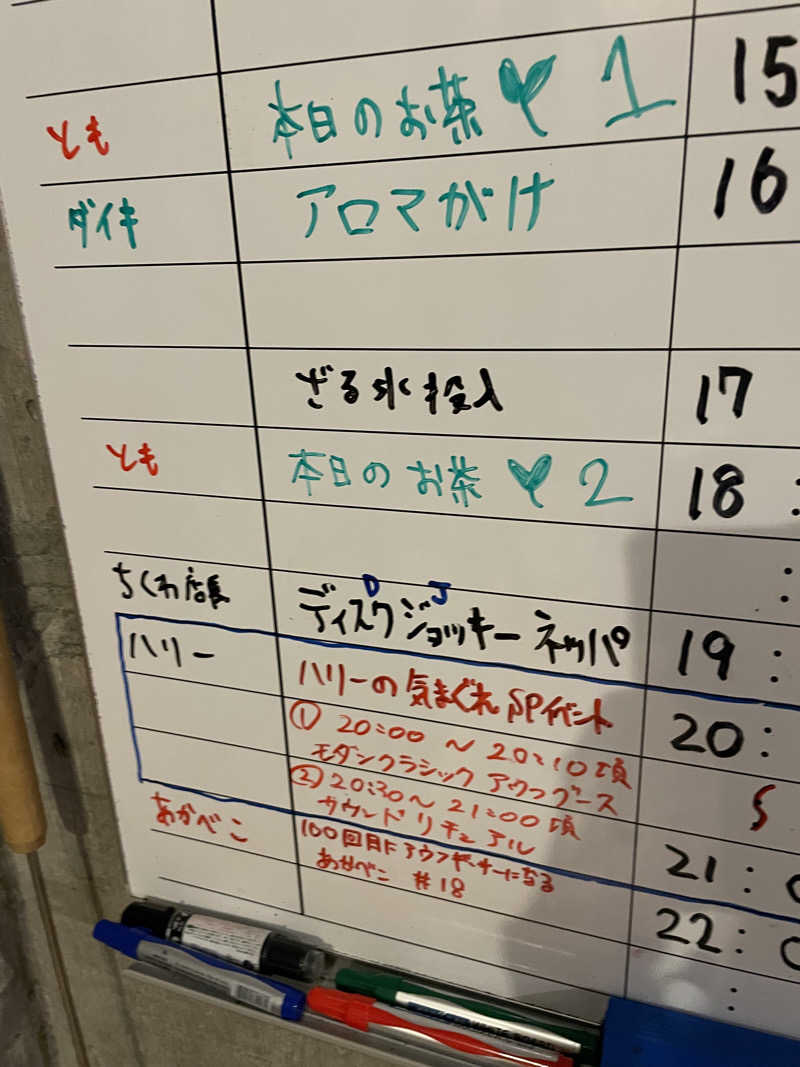 とも 本日のお茶 1 15
ダイキ アロマがけ 16
ざる氷投入 17
とも 本日のお茶 2 18 :
:
ちくわ店長 ディスクジョッキーネッパ 19 :
D J
ハリー ハリーの気まぐれSPイベント 20 :
① 20:00 〜 20:10頃
モダンクラシック アウフグース
② 20:30〜21:00頃
サウンドリチュアル
21 : 0
あかべこ 100回目にアウフギーサーになる
あかべこ #18
22 : 0
: